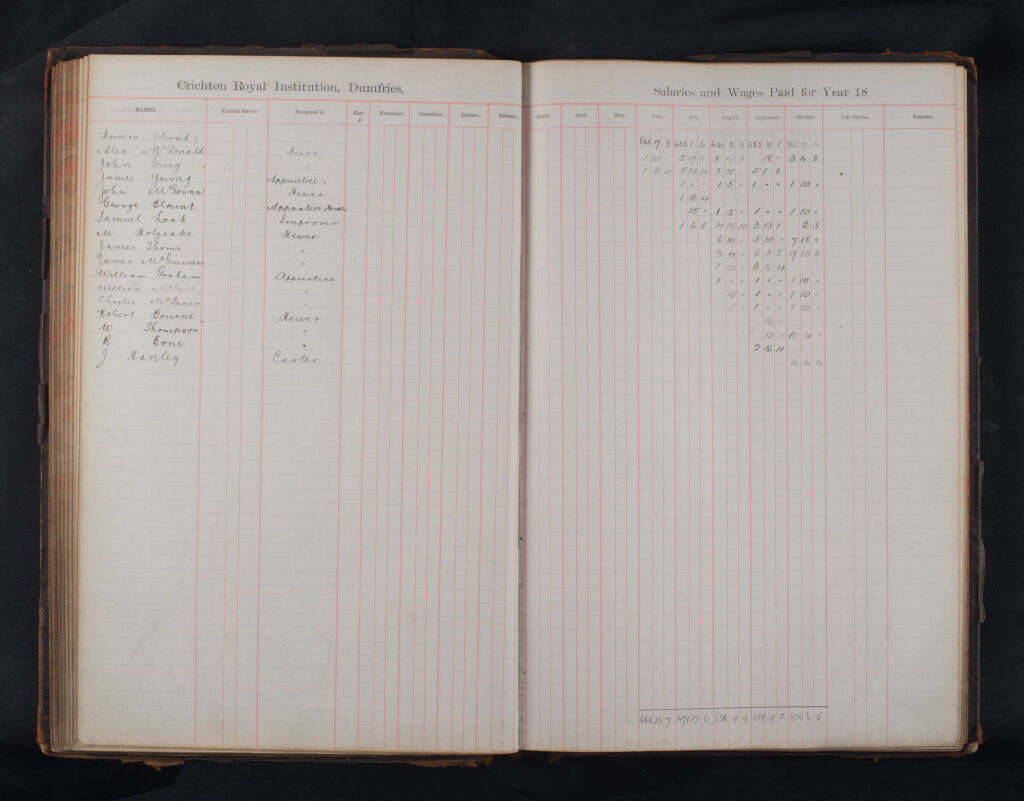 Crichton Royal Institution, Dumfries,
NAMES. Entered Service. Employed as Rate. £ November. December. January. February.
Hewers (Contd)
Alex. McDonald Hewer
John Greig "
James Young Apprentice
John McGowan Hewer
George Blount Apprentice Hewer
Samuel Lock Improver
M. Holyoake Hewer
James Thoms "
James McGuinness "
William Graham Apprentice
William "
Charles McInnes "
Robert Bourne Hewer
W. Thompson "
R. Bone "
J. Hanley Carter
Salaries and Wages Paid for Year 18
March. April. May. June. July. August. September. October. Left Service. Remarks.
668 17 3 1 6 2 3 485 10 1
1 10 - 5 19 2 3 7 8 18 - 3 4 8
1 6 4 5 19 4 10 - 5 1 8
1 " " 1 5 - 1 " " 1 10 "
1 16 4
15 - 1 5 - 1 " " 1 10 -
1 6 8 4 15 10 3 13 1 2 3
6 10 - 5 12 - 7 18 "
3 4 - 6 3 8 9 15 8
1 10 - 3 6 4
1 " " 1 " " 1 10 "
15 - 1 " " 1 10 -
5 - 1 " " 1 10 -
16 "
12 - 4 -
2 16 4
4 4 4
668 13 7 471 17 6 636 9 9 519 9 2 808 6 5